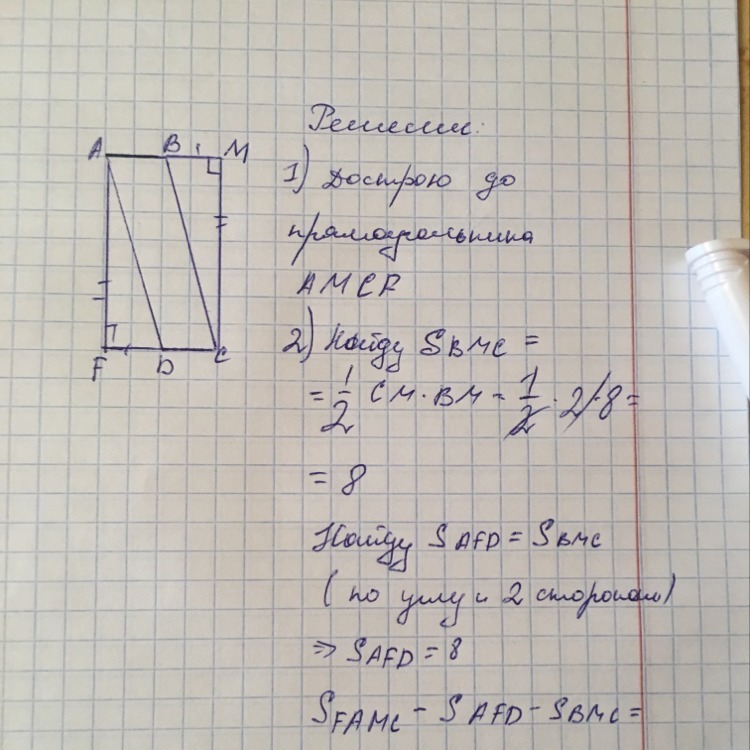 A B M
F D C
Решение:
1) Дострою до
прямоугольника
AMCF
2) Найду SBMC =
= 1/2 CM · BM = 1/2 · 2 · 8 =
= 8
Найду SAFD = SBMC
(по углу и 2 сторонам)
⇒ SAFD = 8
SFAMC - SAFD - SBMC =